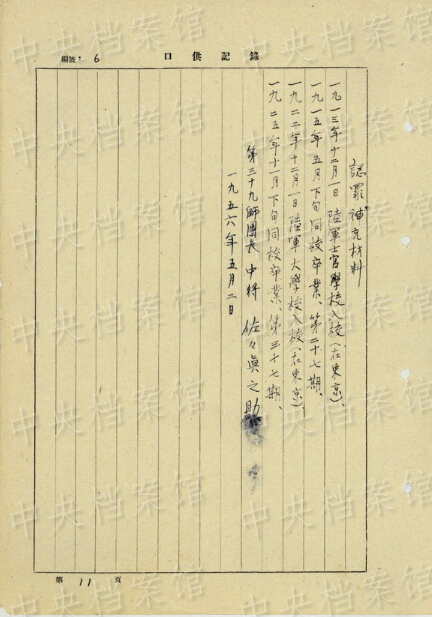 口供記錄
編號：6
認罪補充材料
一九一三年十二月一日陸軍士官學校入校(在東京)、
一九一五年五月下旬同校卒業、第二十七期、
一九二二年十二月一日陸軍大學校入校(在東京)
一九二五年十一月下旬同校卒業、第三十七期、
第三十九師團長 中將 佐々眞之助
一九五六年五月二日
第 11 頁
中央档案馆